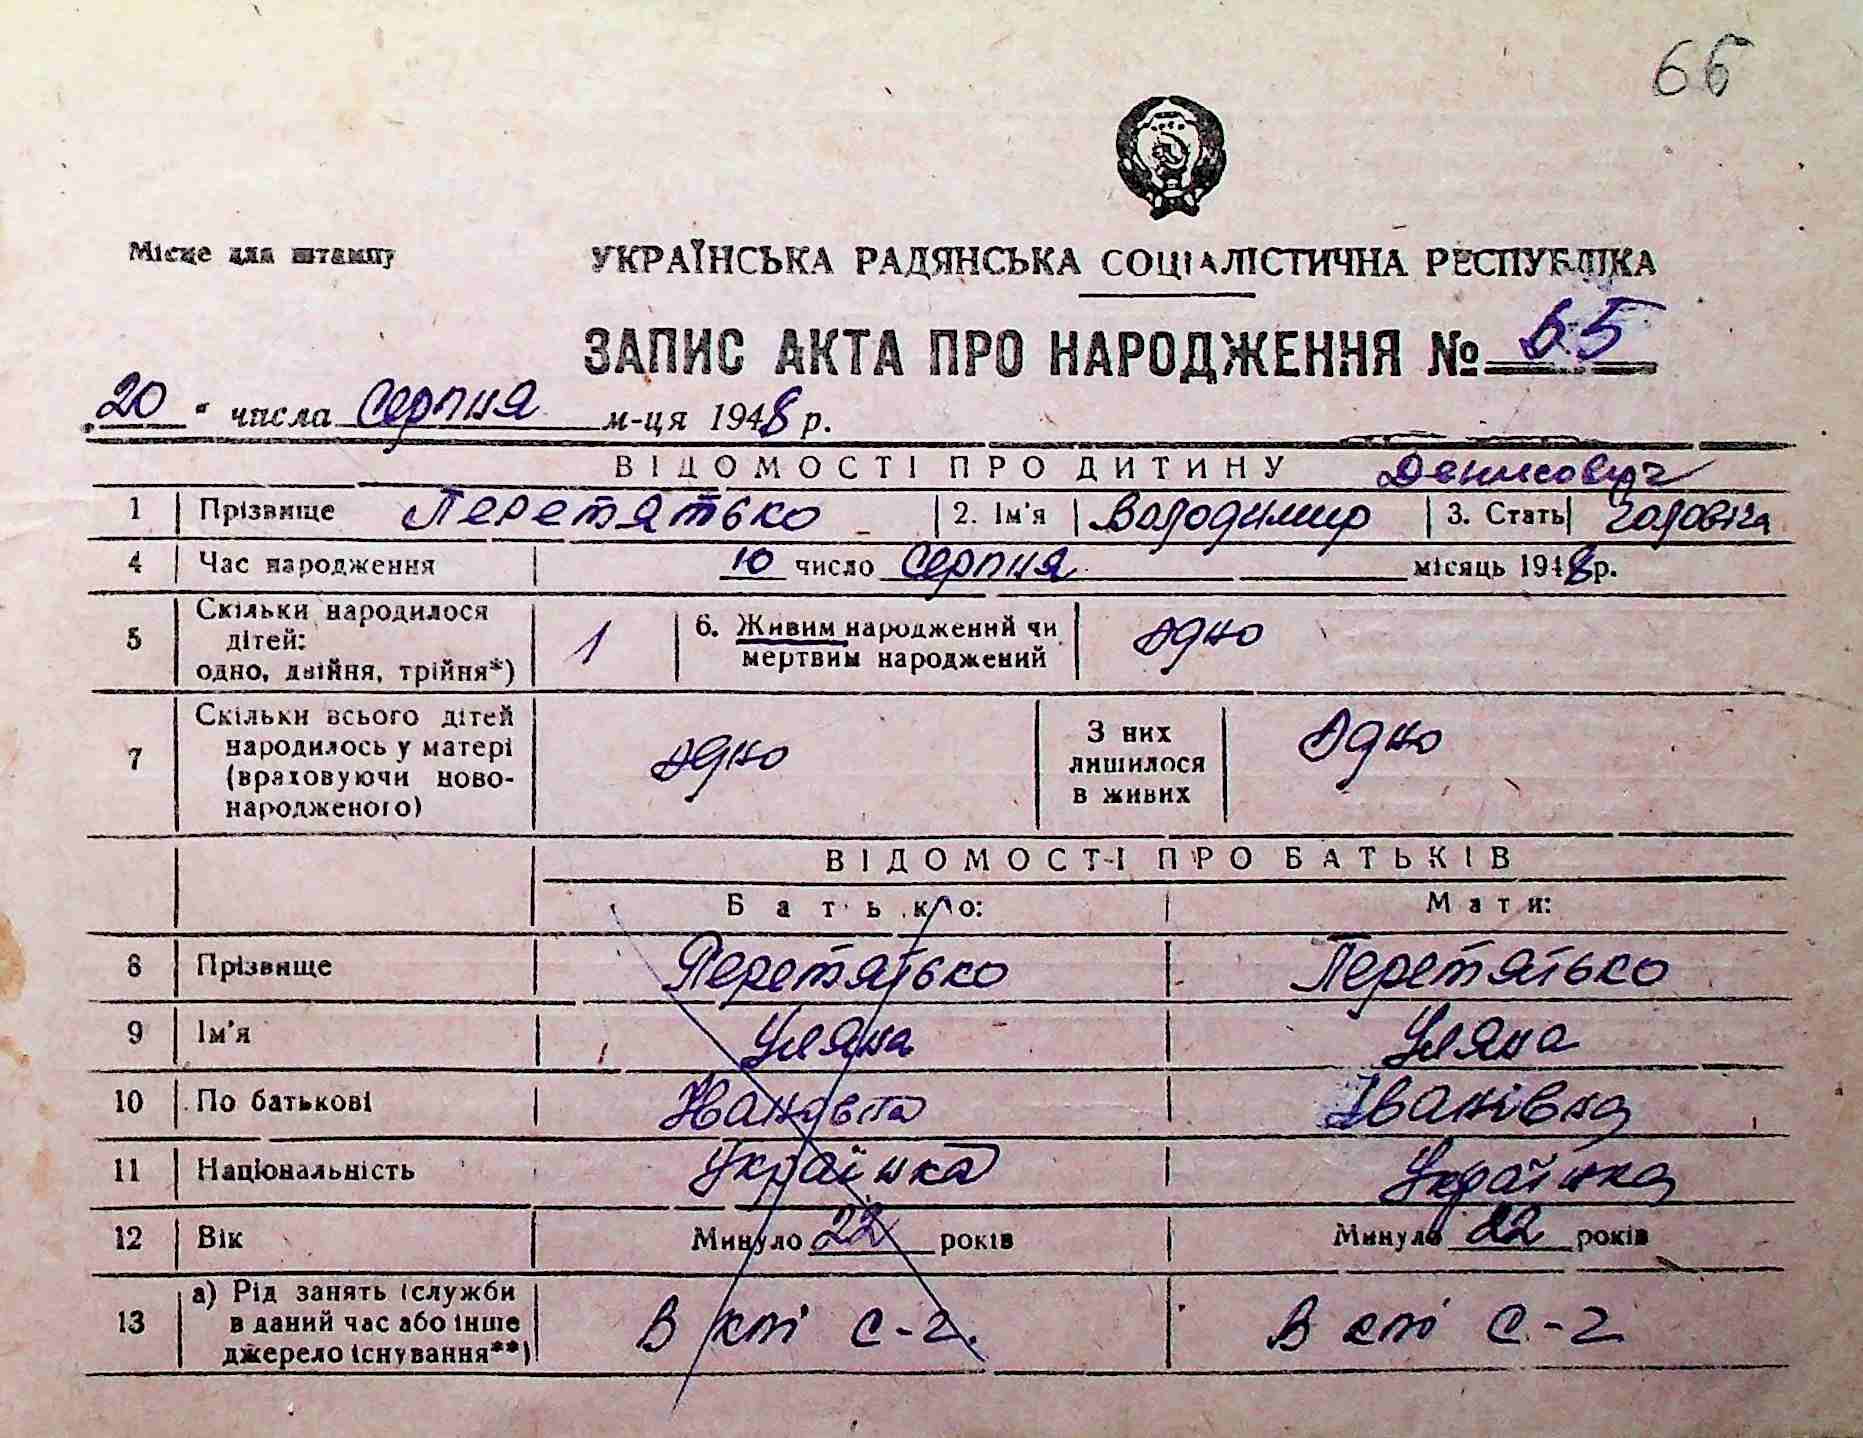 66
Місце для штампу
УКРАЇНСЬКА РАДЯНСЬКА СОЦІАЛІСТИЧНА РЕСПУБЛІКА
ЗАПИС АКТА ПРО НАРОДЖЕННЯ № 65
„20“ числа Серпня м-ця 1948 р.
ВІДОМОСТІ ПРО ДИТИНУ Денисович
1 Прізвище Перетятько 2. Ім'я Володимир 3. Стать Чоловіча
4 Час народження 10 число Серпня місяць 1948 р.
5 Скільки народилося дітей: одно, двійня, трійня*) 1 6. Живим народжений чи мертвим народжений одно
7 Скільки всього дітей народилось у матері (враховуючи ново-народженого) одно З них лишилося в живих одно
ВІДОМОСТІ ПРО БАТЬКІВ
Батько: Мати:
8 Прізвище Перетятько Перетятько
9 Ім'я Уляна Уляна
10 По батькові Івановна Іванівна
11 Національність Українка Українка
12 Вік Минуло 22 років Минуло 22 років
13 а) Рід занять (служби в даний час або інше джерело існування**) В с-г. В с-г